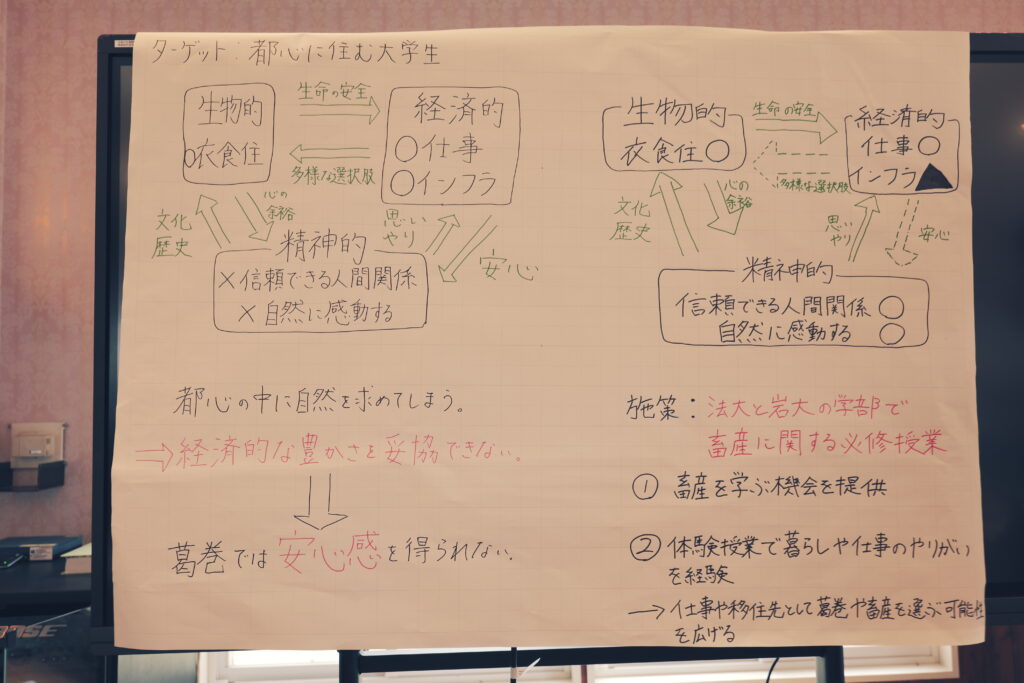 ターゲット:都心に住む大学生
生物的
○衣食住
生命の安全
多様な選択肢
経済的
○仕事
○インフラ
文化
歴史
心の
余裕
思い
やり
安心
精神的
×信頼できる人間関係
×自然に感動する
都心の中に自然を求めてしまう。
⇒経済的な豊かさを妥協できない。
葛巻では安心感を得られない。
生物的
衣食住○
生命の安全
多様な選択肢
経済的
仕事○
インフラ▲
文化
歴史
心の
余裕
思い
やり
安心
精神的
信頼できる人間関係○
自然に感動する○
施策:法大と岩大の学部で
畜産に関する必修授業
① 畜産を学ぶ機会を提供
② 体験授業で暮らしや仕事のやりがい
を経験
→仕事や移住先として葛巻や畜産を選ぶ可能性
を広げる